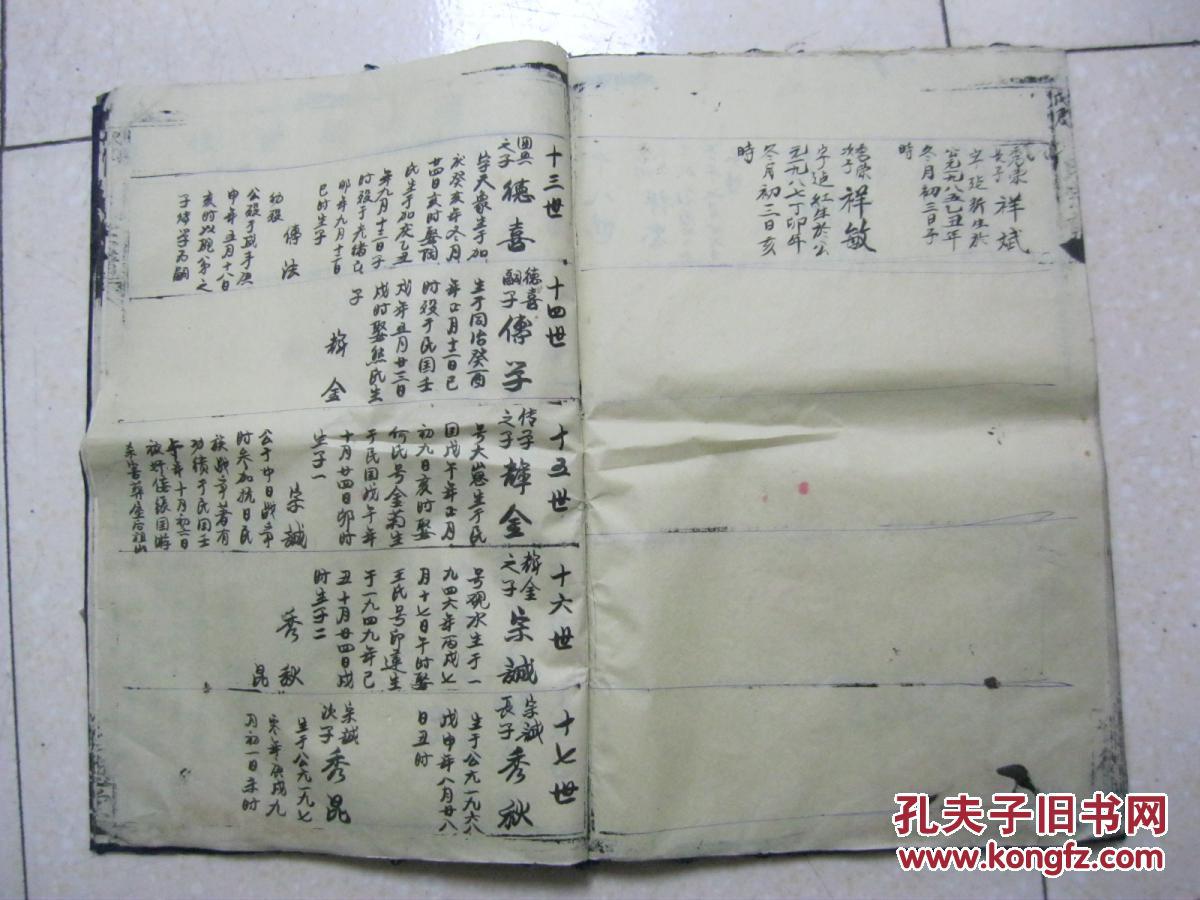 長子 祥斌
字 新生於
公元一九八五乙丑年
冬月初三日子
時
次子 祥敏
字 紅生於公
元一九八七丁卯年
冬月初三日亥
時
十三世
之子 德喜
字天象生于加
慶癸亥年冬月
廿四日亥时娶
民生于加庆乙丑
年九月十二日子
时殁于光绪乙
卯年九月十二日
巳时生子
幼殁 傳法
公殁于 庚
申年五月十八日
亥时以 弟之
子 学为嗣
十四世
德喜嗣子 傳学
生于同治癸酉
年正月十二日巳
时殁于民国壬
戌年五月廿三日
戌时娶熊氏生
子
輝金
十五世
传学之子 輝金
号大 生于民
国戊午年正月
初九日亥时娶
何氏号金菊生
于民国戊午年
十月廿四日卯时
生子一
宗誠
公于中日战争
时参加抗日民
族战争著有
功绩于民国壬
午年十月初二日
被奸 国游
击 害葬屋后祖山
十六世
輝金之子 宗誠
号砚水生于一
九四六年丙戌七
月十七日午时娶
王氏号印蓮生
于一九四九年己
丑十月廿四日戌
时生子二
秀 秋
昆
十七世
宗誠長子 秀秋
生于公元一九六八
戊申年八月廿八
日丑时
宗誠次子 秀昆
生于公元一九七
零年庚戌九
月初一日未时
孔夫子旧书网
www.kongfz.com